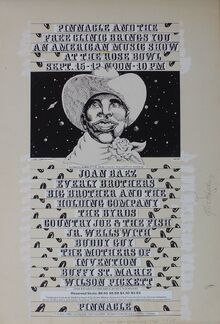 PINNACLE AND THE
FREE CLINIC BRINGS YOU
AN AMERICAN MUSIC SHOW
AT THE ROSE BOWL
SEPT. 15 - 12 NOON - 10 PM
JOAN BAEZ
EVERLY BROTHERS
BIG BROTHER AND THE
HOLDING COMPANY
THE BYRDS
COUNTRY JOE & THE FISH
JR. WELLS WITH
BUDDY GUY
THE MOTHERS OF
INVENTION
BUFFY ST. MARIE
WILSON PICKETT
PINNACLE